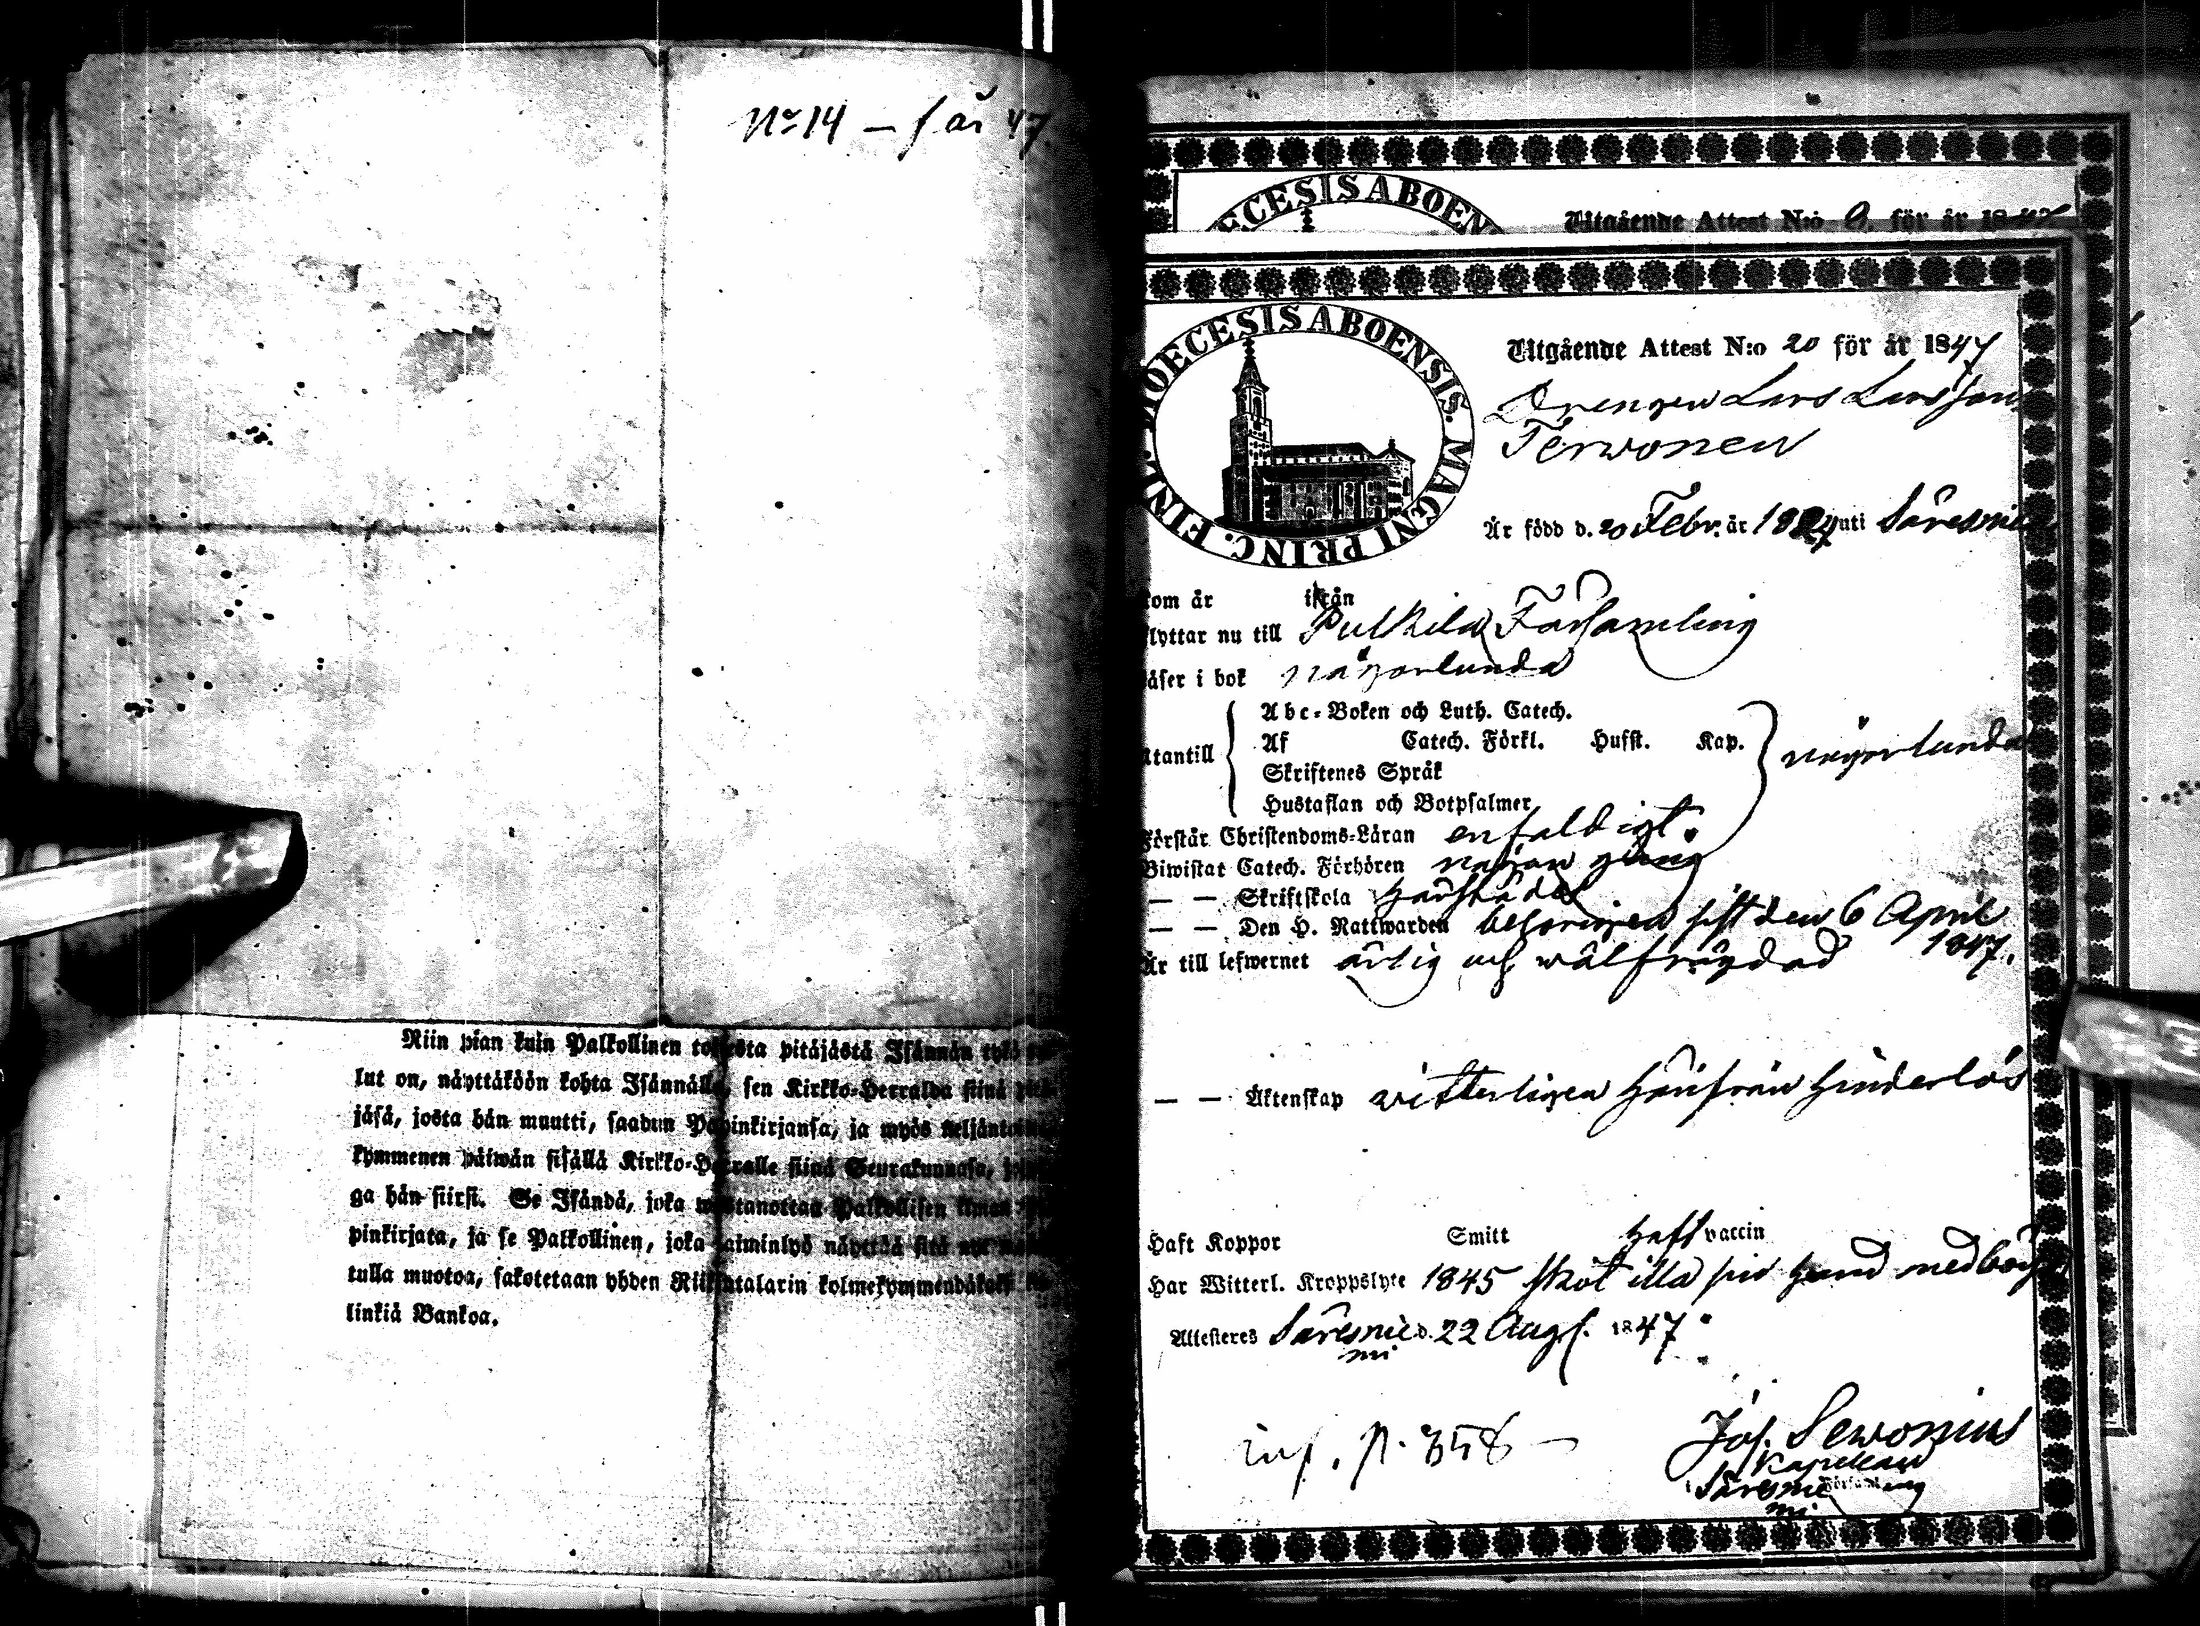 No 14 — f år 47
Niin pian kuin Palkollinen toisesta pitäjästä Isännän tykö
lut on, näyttäköön kohta Isännälle, sen Kirkko-Herralda siinä
jäsä, josta hän muutti, saadun Papinkirjansa, ja myös neljäntoista
kymmenen päiwän sisällä Kirkko-Herralle siinä Seurakunnasa,
ga hän siirsi. Se Isändä, joka wastanottaa Palkollisen ilman
pinkirjata, ja se Palkollinen, joka laiminlyö näyttää sitä
tulla muotoa, sakotetaan yhden Riiksintalarin kolmekymmendäkaksi
linkiä Bankoa.
ECESIS ABOEN
Utgående Attest N:o 9. för år 1847
DIOECESIS ABOENSIS. MAGNI PRINC. FINL.
Utgående Attest N:o 20 för år 1847
Drengen Lars Larsson
Terwonen
Är född d. 20 Febr. år 1824 uti Säresnie
kom år ifrån
flyttar nu till Pulkila Församling
läser i bok någorlunda
Abc-Boken och Luth. Catech.
Af Catech. Förkl. Husst. Kap.
Utantill någorlunda
Skriftenes Språk
Hustaflan och Botpsalmer
Förstår Christendoms-Läran enfaldigt.
Biwistat Catech. Förhören någon gång
— — Skriftskola härstädes
— — Den H. Nattwarden besörjen sist den 6 April
1847.
Är till lefwernet ärlig och wälfrägdad
— — Äktenskap witterligen härifrån hinderlös
Haft Koppor Smitt haft vaccin
Har Witterl. Kroppslyte 1845 sköt illa sin hand
Attesteres Säresnie d. 22 Aug. 1847.
mi
inf. p. 358 —
Jos. Sewonius
Kapellan
Säresnie Församling
mi